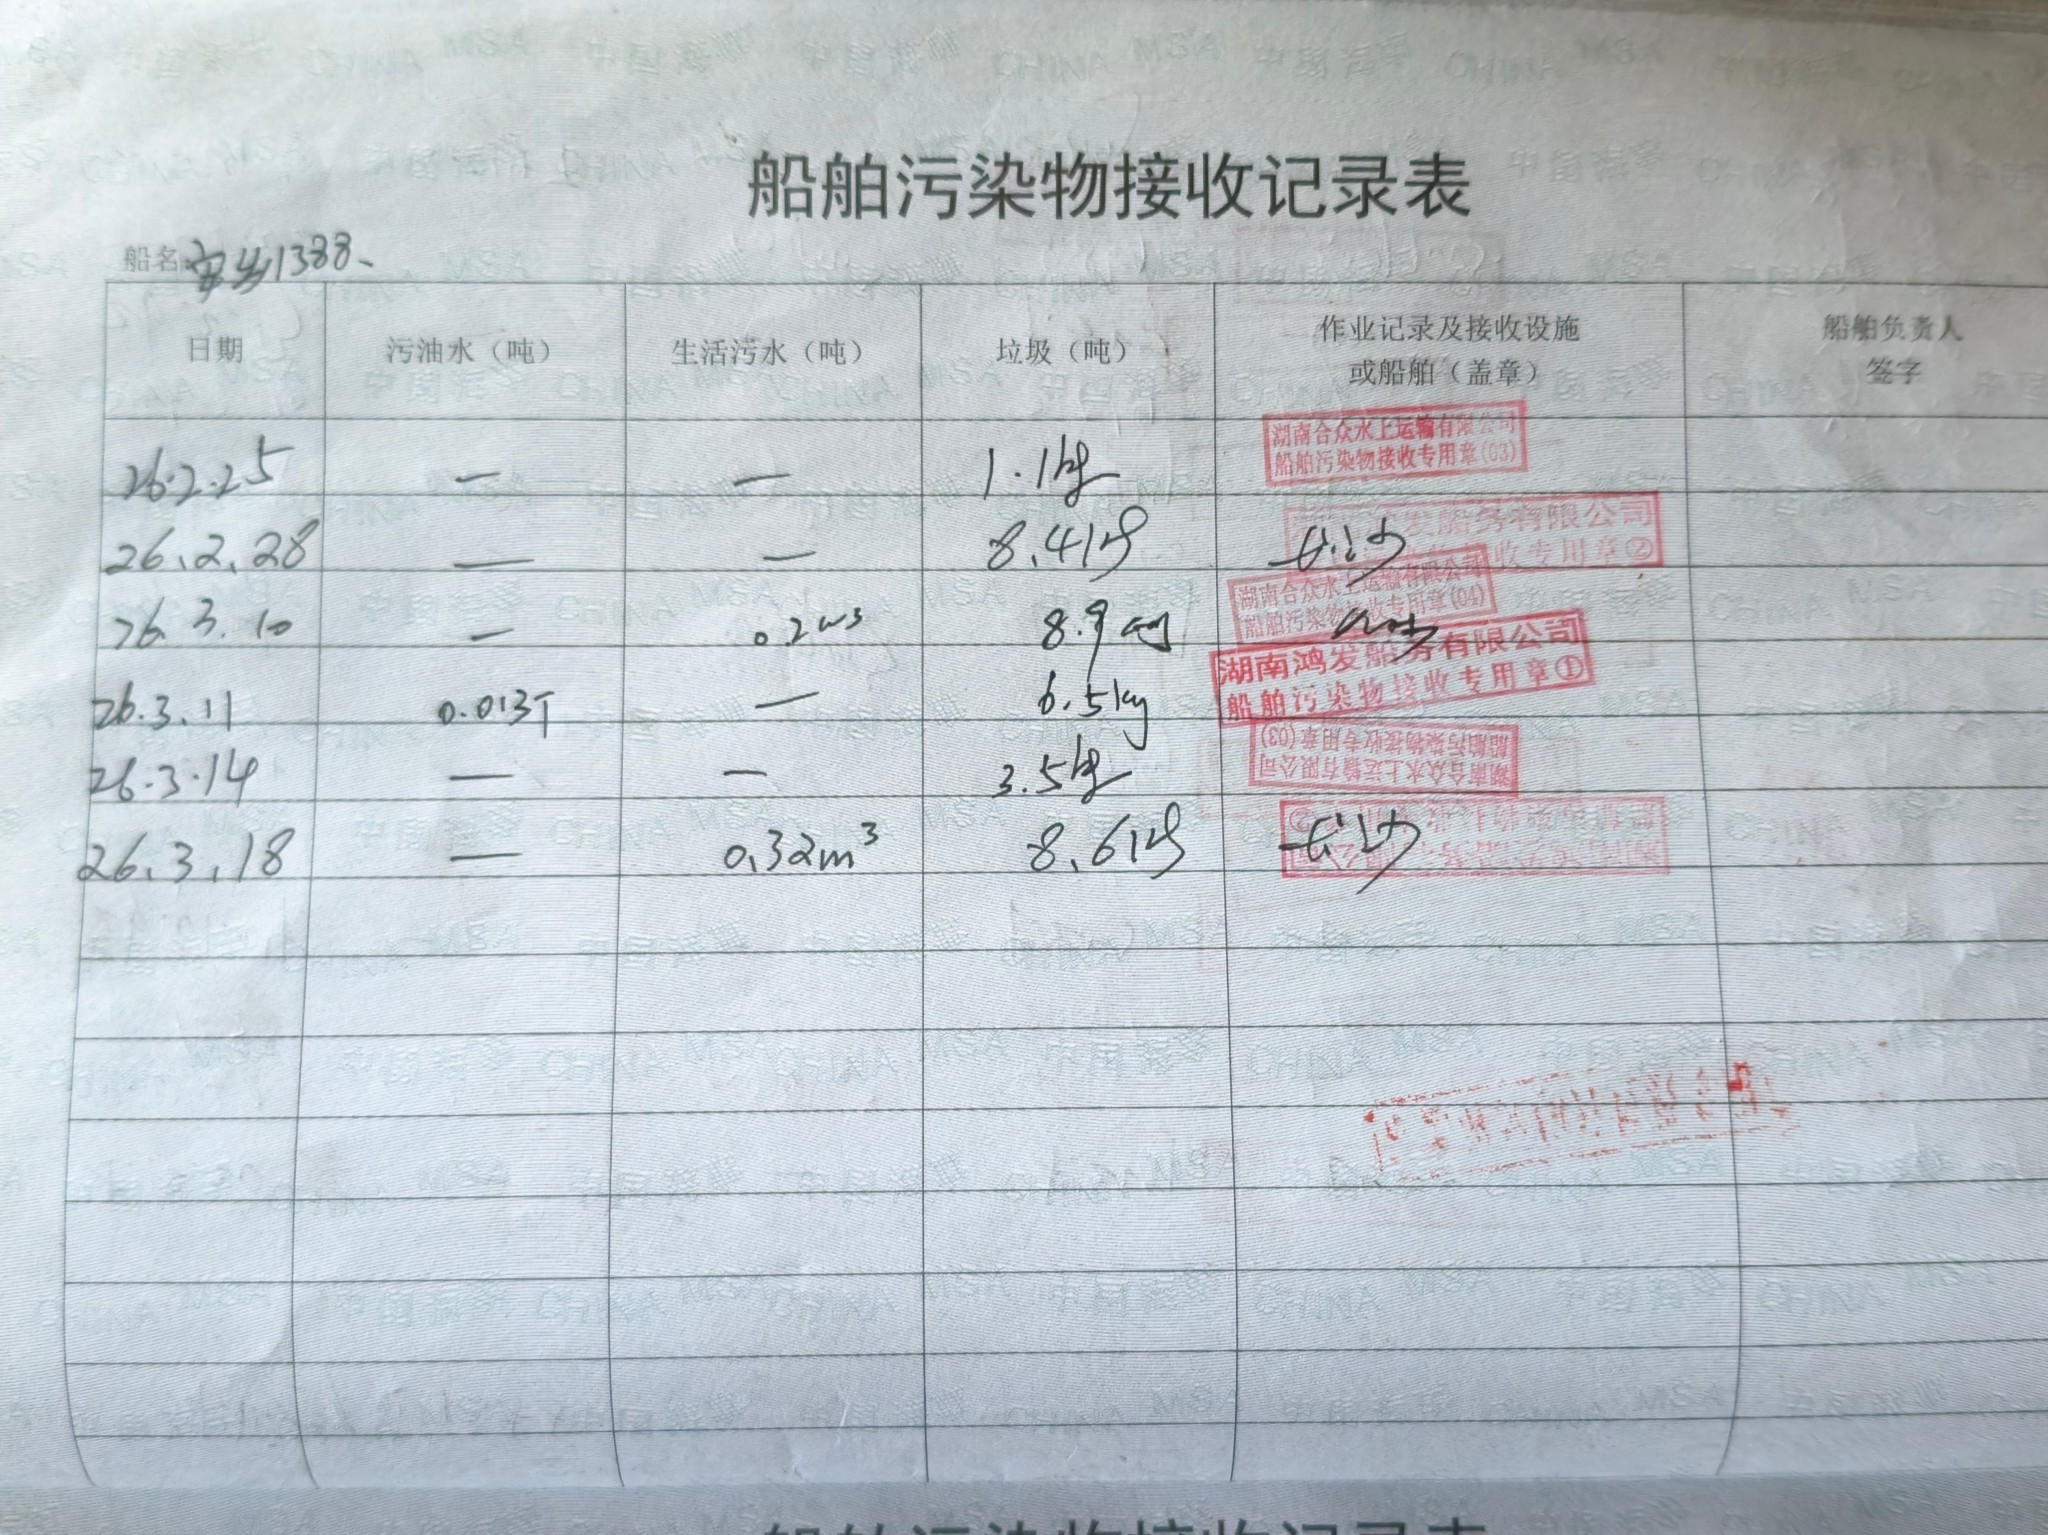 船舶污染物接收记录表
船名 1388
日期 污油水（吨） 生活污水（吨） 垃圾（吨） 作业记录及接收设施或船舶（盖章） 船舶负责人签字
26.2.25 — — 1.1kg 湖南合众水上运输有限公司
船舶污染物接收专用章(03)
26.2.28 — — 8.4kg 发船务有限公司
接收专用章②
26.3.10 — 0.2m³ 8.9kg 湖南合众水上运输有限公司
船舶污染物接收专用章(04)
26.3.11 0.013T — 6.5kg 湖南鸿发船务有限公司
船舶污染物接收专用章①
26.3.14 — — 3.5kg 湖南合众水上运输有限公司
船舶污染物接收专用章(03)
26.3.18 — 0.32m³ 8.6kg
船舶污染物接收记录表